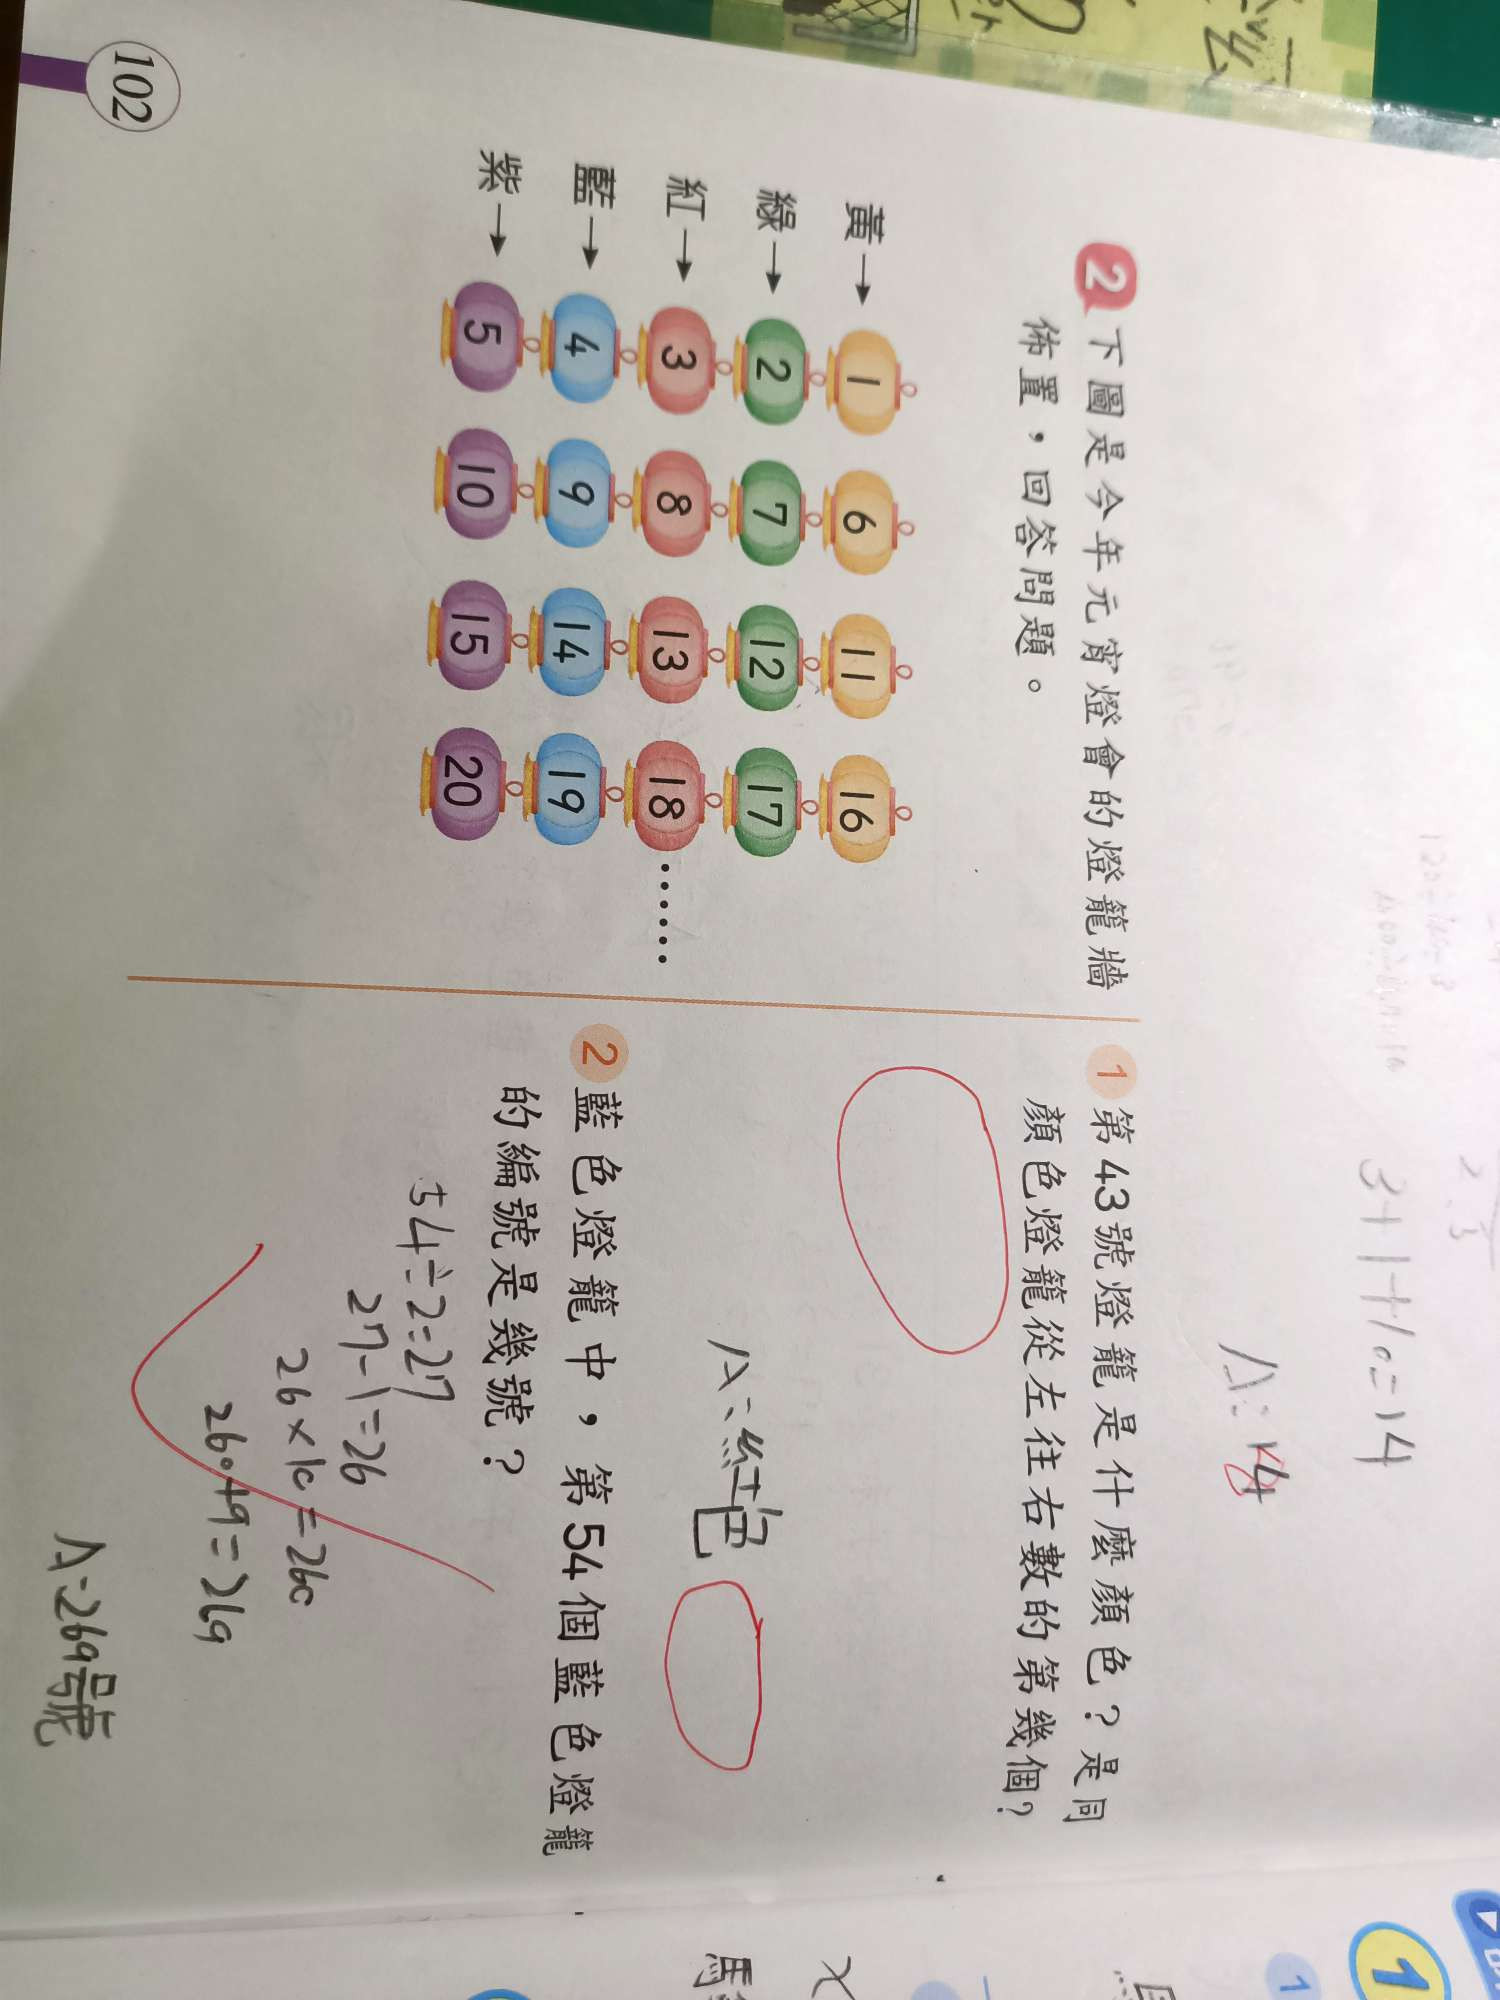 3+1+10=14
A:14
2 下圖是今年元宵燈會的燈籠牆
佈置，回答問題。
黃→ 1 6 11 16
綠→ 2 7 12 17
紅→ 3 8 13 18 ……
藍→ 4 9 14 19
紫→ 5 10 15 20
1 第43號燈籠是什麼顏色？是同
顏色燈籠從左往右數的第幾個？
A:紅色
2 藍色燈籠中，第54個藍色燈籠
的編號是幾號？
54÷2=27
27-1=26
26×10=260
260+9=269
A:269號
102
1
1